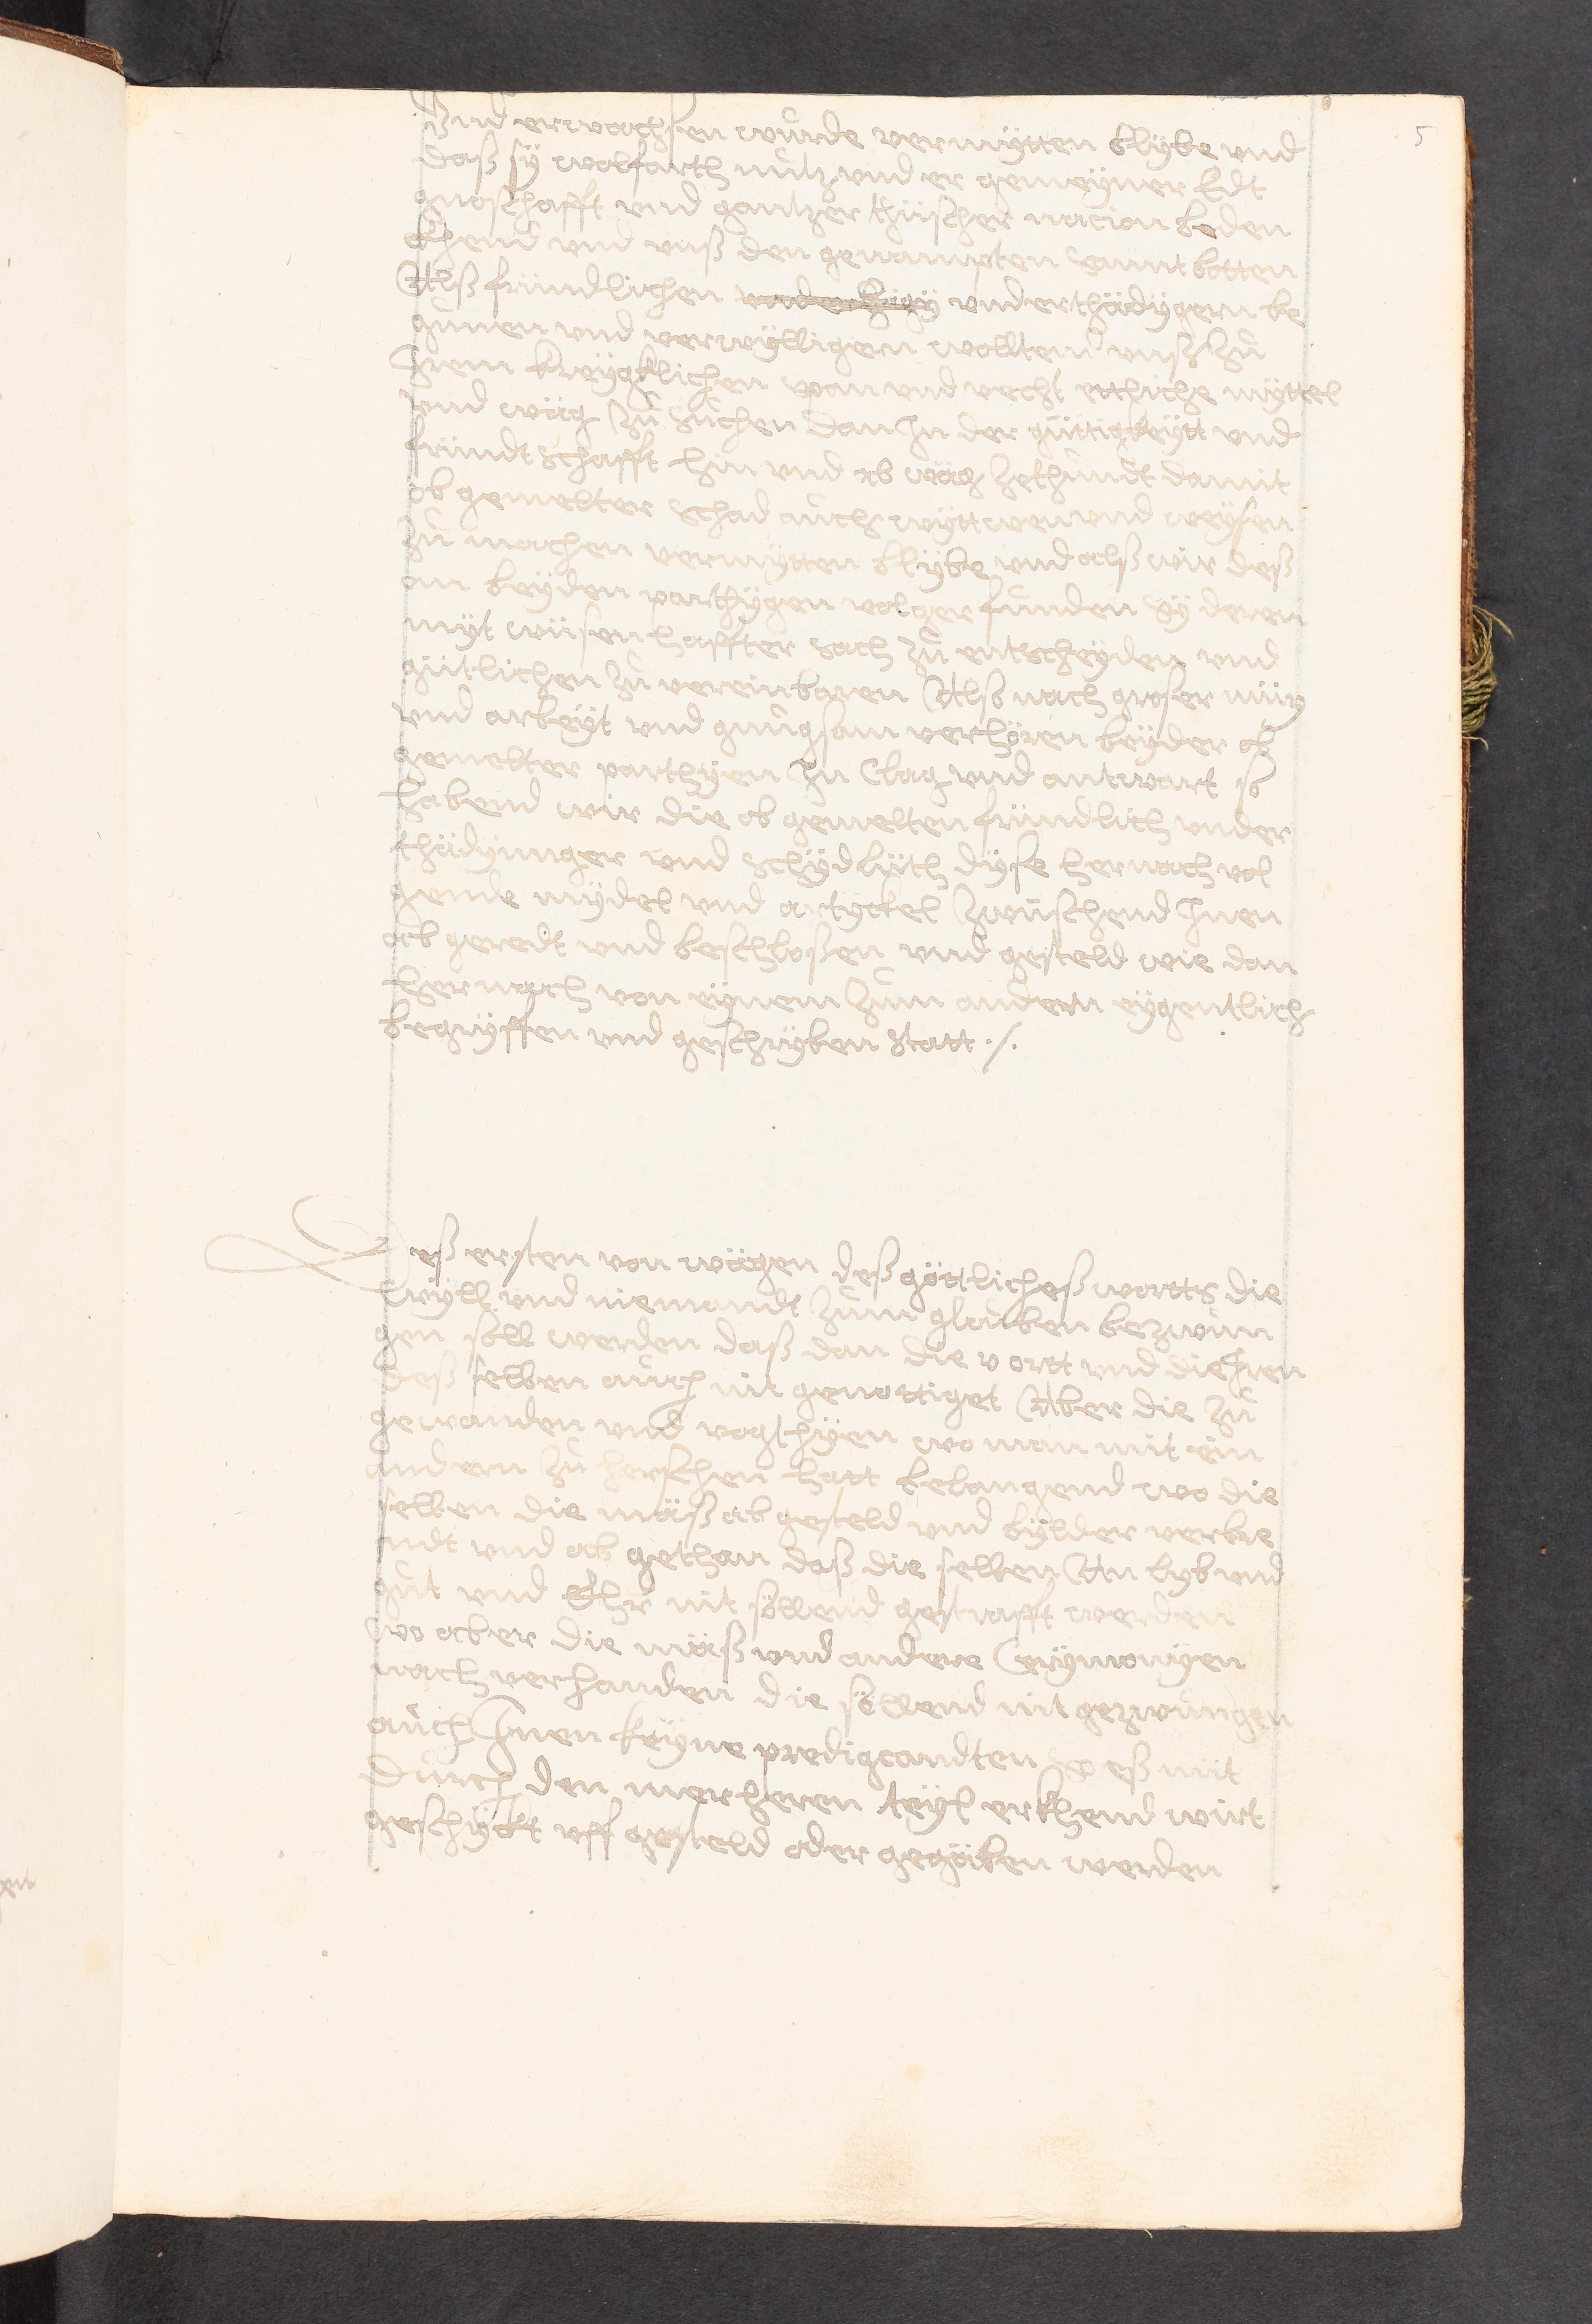 5
Vnd erwachsen wurde vermytten blybe vnd
daß sÿ wolfarth nutz vnd er gemeÿner Eidt
gnoschafft vnd gantzer thüscher nacion beden
ckhend vnd vnß den genampten sannt botten
Alß fründlichen vnderthädÿgern be
günen vnd verwÿlligen wolltend vnß zu
Irem kryegklichen span vnd vecht ettliche mÿttel
vnd wäg zu suchen dan In der güttigkeÿtt vnd
fründtschafft hin vnd ab wäg zethundt damit
ob gemelter schad auch wÿttwen vnd weÿsen
zu machen vermÿtten blÿbe vnd alß wir deß
an beÿden parthÿgen volg erfunden sÿ deren
mÿt wüsenhaffter sach zu entscheÿden vnd
gütlichen zu vereinbaren Alß nach groser müÿ
vnd arbeÿt vnd gnugsam verhören beÿder ob
gemelter parthÿen In Clag vnd antwart so
habend wir die ob gemelten fründlich vnder
thädÿnger vnd schÿdlüth dÿse hernach vol
gende mÿdel vnd artÿckel zwüschend Inen
ab geredt vnd beschloßen vnd gesteld wie dan
hernach von eÿnem zum andern eÿgentlich
begrÿffen vnd geschrÿben statt ./.
Deß ersten von wägen deß göttlicheß wortts die
wÿll vnd niemandt zum glauben bezwun
gen sÿll werden daß dan die v ortt vnd die Iren
deß selben auch nit genottiget Aber die zu
gewanden vnd vogthÿen wo man mit ein
andern zu herschen hatt belangend wo die
selben die mäß ab gesteld vnd bÿlder verbre
ndt vnd ab gethan daß die selben An lyb vnd
gut vnd Ehr nit söllend gestrafft werden
wo aber die mäß vnd andere Cerÿmonÿen
nach verhanden die söllend nit gezwungen
auch Inen keÿne predigcandten so eß nüt
durch den merheren teÿl erkhend wirt
geschÿckt vff gesteld oder gegäben werden